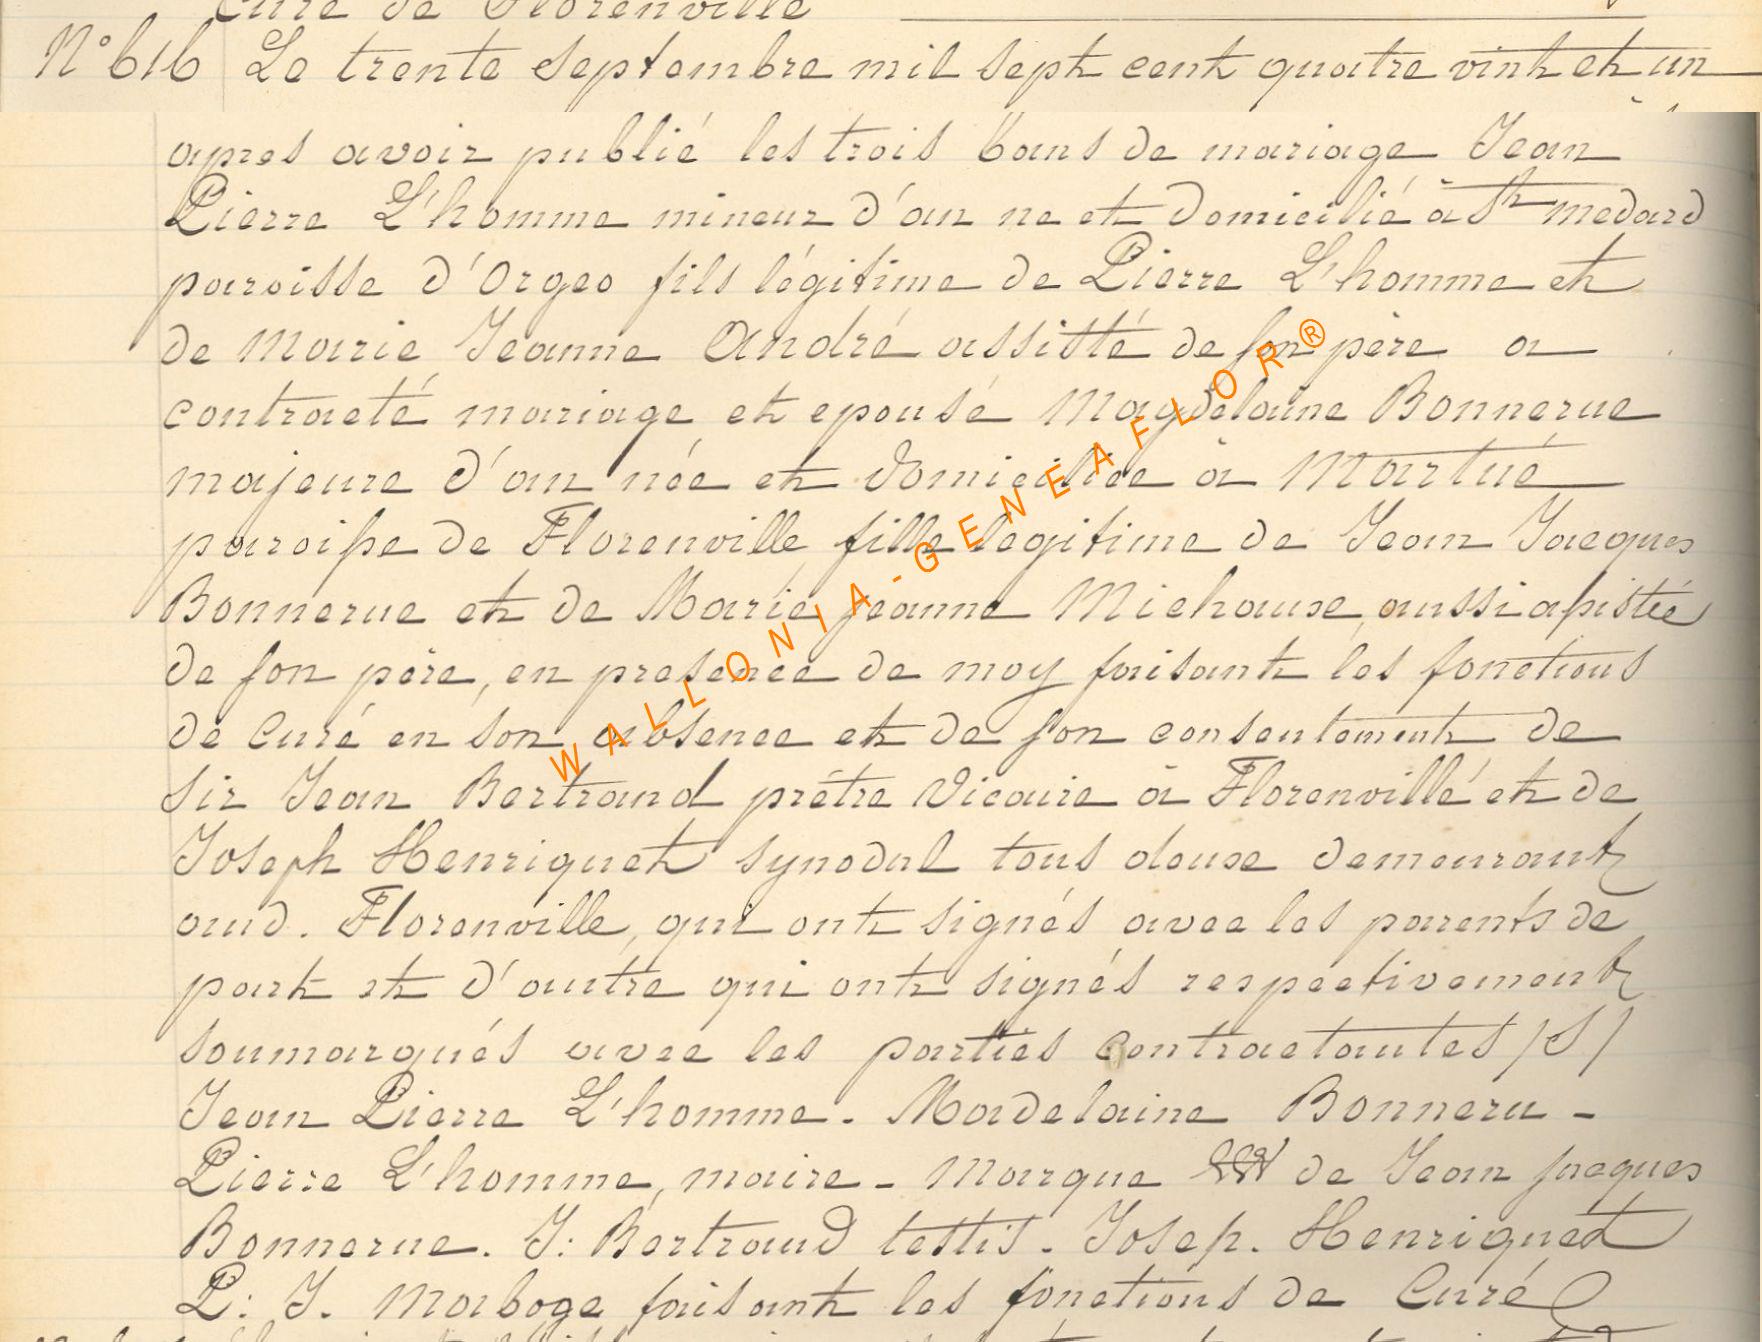 Curé de Florenville
N° 616 Le trente septembre mil sept cent quatre vint et un
apres avoir publié les trois bans de mariage Jean
Pierre L'homme mineur d'an ne et domicilié à St medard
paroisse d'Orgeo fils légitime de Pierre L'homme et
de Marie Jeanne André assisté de son père a
contracté mariage et epousé Magdelaine Bonnerue
majeure d'an née et domiciliée à Martué
paroisse de Florenville fille legitime de Jean Jacques
Bonnerue et de Marie jeanne Michaux, aussi assistée
de son père, en presence de moy faisant les fonctions
de Curé en son absence et de son consentement de
sir Jean Bertrand prêtre Vicaire à Florenville et de
Joseph Henriquet synodal tous douse demeurant
aud. Florenville, qui ont signés avec les parents de
part et d'autre qui ont signés respectivement
soumarqués avec les parties contractantes /S/
Jean Pierre L'homme - Madelaine Bonneru -
Pierre L'homme, maire - Marque de Jean Jacques
Bonnerue. J: Bertrand testis - Josep. Henriquet
P: J. Maboge faisant les fonctions de Curé
WALLONIA-GENEAFLOR®